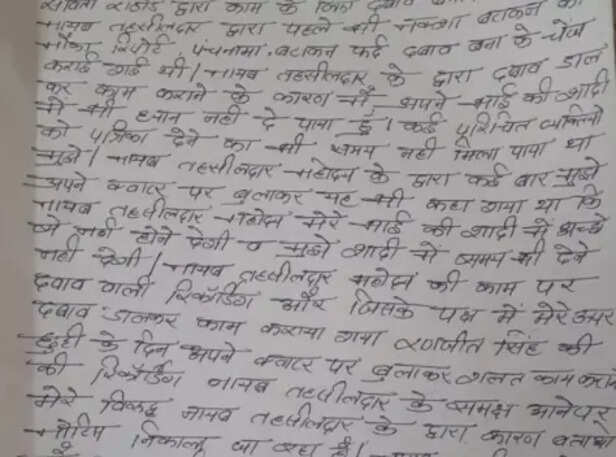 सविता राठौड़ द्वारा काम के लिए दबाव
नायब तहसीलदार द्वारा पहले भी नक्शा बटाकन का
मौका रिपोर्ट, पंचनामा, बटाकन फर्द दबाव बना के चेंज
कराई गई थी। नायब तहसीलदार के द्वारा दबाव डाल
कर काम कराने के कारण मैं अपने भाई की शादी
में भी ध्यान नहीं दे पाया हूँ। कई परिचित व्यक्तियो
को पत्रिका देने का भी समय नहीं मिला पाया था
मुझे। नायब तहसीलदार महोदय के द्वारा कई बार मुझे
अपने क्वाटर पर बुलाकर यह भी कहा गया था कि
नायब तहसीलदार महोदय मेरे भाई की शादी में अच्छे
से नहीं होने देगी व मुझे शादी में समय भी देने
नहीं देगी। नायब तहसीलदार महोदय की काम पर
दबाव वाली रिकॉर्डिंग और जिसके पक्ष में मेरे ऊपर
दबाव डालकर काम कराया गया रणजीत सिंह की
छुट्टी के दिन अपने क्वाटर पर बुलाकर गलत काम कराने
की रिकॉर्डिंग नायब तहसीलदार के समक्ष आने पर
मेरे विरुद्ध नायब तहसीलदार के द्वारा कारण बताओ
नोटिस निकाला जा रहा है।